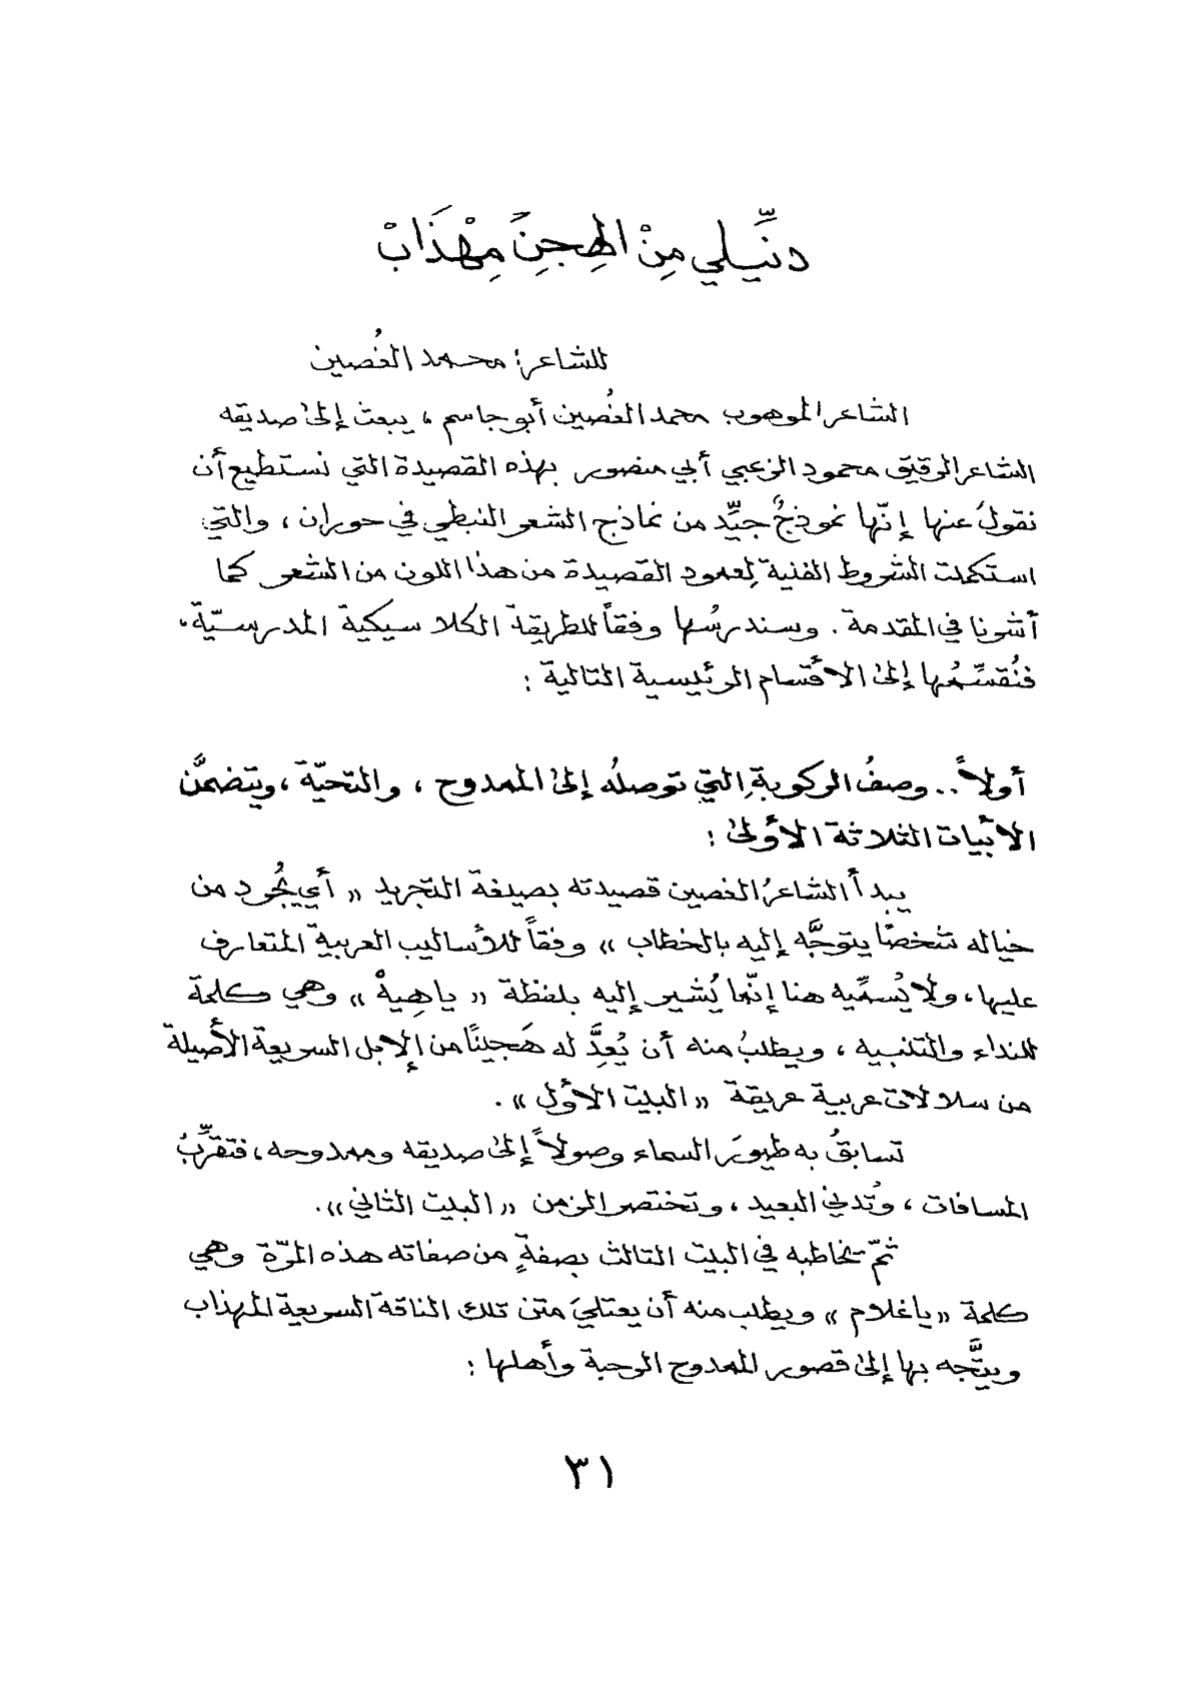 دنِّيلي مِنْ الهِجِنْ مِهْذَابْ
للشاعر: محمد الغُصين
الشاعر الموهوب محمد الغُصين أبو جاسم ، يبعث إلى صديقه
الشاعر الرقيق محمود الزعبي أبي منصور بهذه القصيدة التي نستطيع أن
نقولَ عنها إنّها نموذجٌ جيِّد من نماذج الشعر النبطي في حوران ، والتي
استكملت الشروط الفنية لِعمود القصيدة من هذا اللون من الشعر كما
أشرنا في المقدمة . وسندرسُها وفقاً للطريقة الكلاسيكية المدرسيّة،
فنُقسِّمُها إلى الأقسام الرئيسية التالية :
أولاً .. وصفُ الركوبةِ التي توصلُه إلى الممدوح ، والتحيّة ، ويتضمَّن
الأبيات الثلاثة الأولى :
يبدأ الشاعرُ الغصين قصيدته بصيغة التجريد « أي يجُرد من
خياله شخصًا يتوجَّه إليه بالخطاب » وفقاً للأساليب العربية المتعارف
عليها، ولا يُسمِّيه هنا إنّما يُشير إليه بلفظة « ياهِيهْ » وهي كلمة
للنداء والتنبيه ، ويطلبُ منه أن يُعِدَّ له هَجينًا من الإبل السريعة الأصيلة
من سلالات عربية عريقة « البيت الأول » .
تسابقُ به طيورَ السماء وصولاً إلى صديقه وممدوحه، فتقرِّبُ
المسافات ، وتُدني البعيد ، وتختصر الزمن « البيت الثاني ».
ثمّ يخاطبه في البيت الثالث بصفةٍ من صفاته هذه المرّة وهي
كلمة « ياغلام » ويطلب منه أن يعتليَ متن تلك الناقة السريعة المهذاب
ويتَّجه بها إلى قصور الممدوح الرحبة وأهلها :
٣١